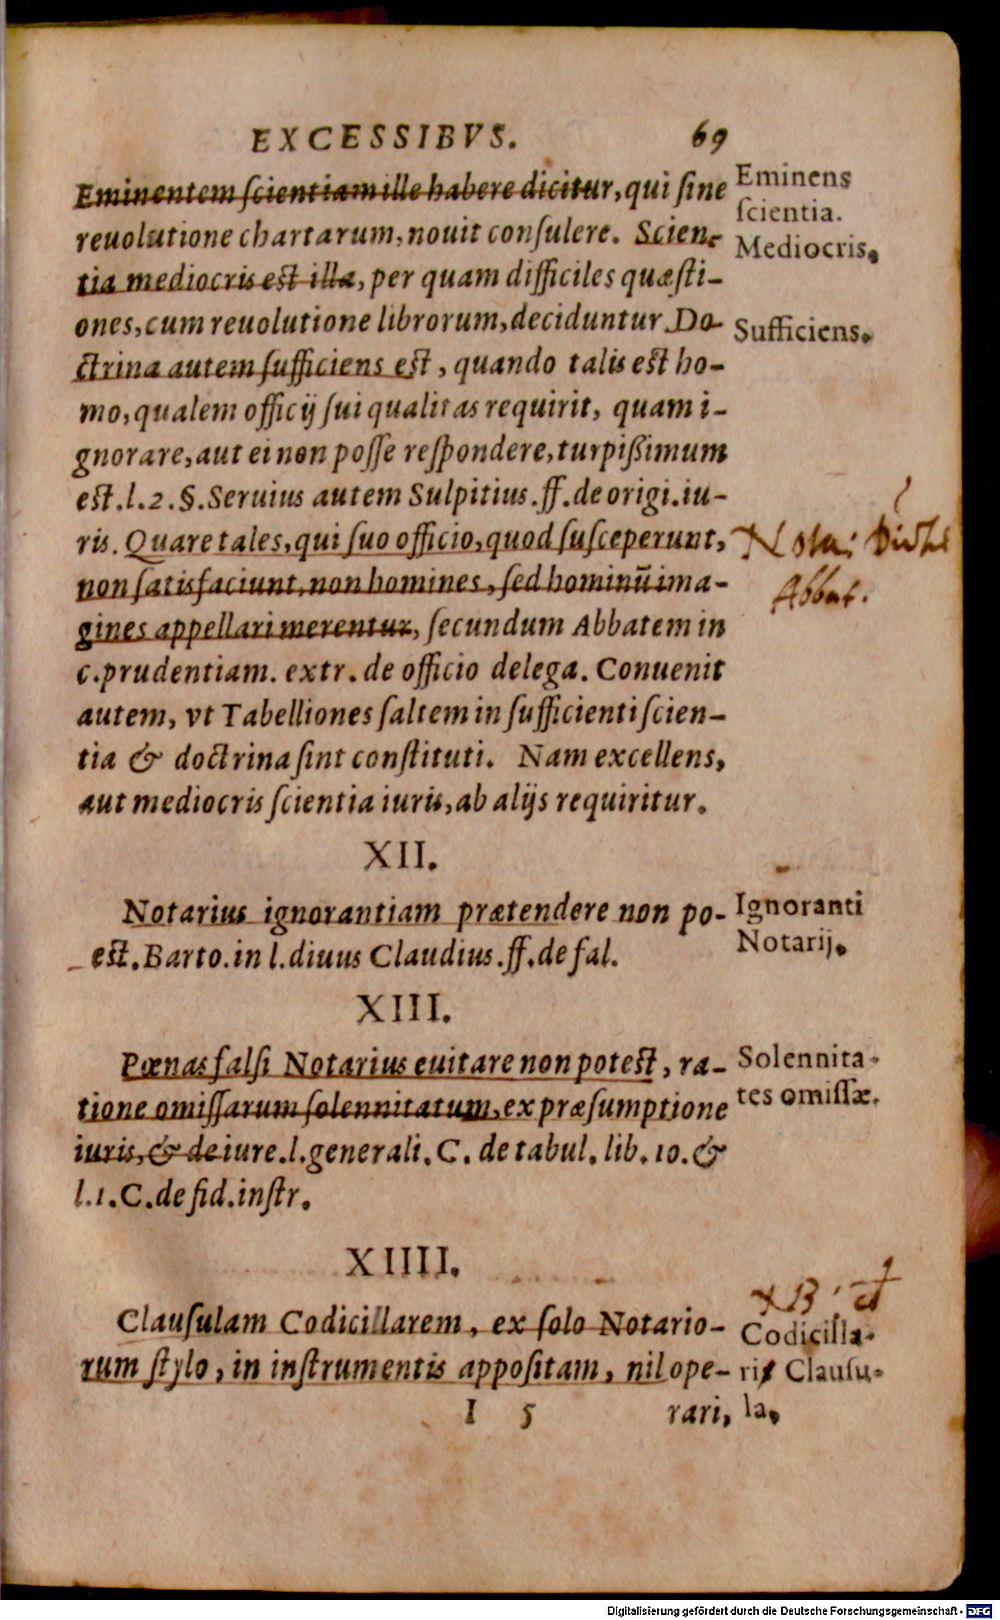 EXCESSIBVS. 69
Eminentem ſcientiam ille habere dicitur, qui ſine
reuolutione chartarum, nouit conſulere. Scien-
tia mediocris est illa, per quam difficiles quæſti-
ones, cum reuolutione librorum, deciduntur. Do-
ctrina autem ſufficiens est, quando talis est ho-
mo, qualem officij ſui qualitas requirit, quam i-
gnorare, aut ei non poſſe reſpondere, turpißimum
est. l. 2. §. Seruius autem Sulpitius. ff. de origi. iu-
ris. Quare tales, qui ſuo officio, quod ſuſceperunt,
non ſatisfaciunt, non homines, ſed hominũ ima-
gines appellari merentur, ſecundum Abbatem in
c. prudentiam. extr. de officio delega. Conuenit
autem, vt Tabelliones ſaltem in ſufficienti ſcien-
tia & doctrina ſint conſtituti. Nam excellens,
aut mediocris ſcientia iuris, ab alijs requiritur.
Eminens
ſcientia.
Mediocris.
Sufficiens.
Nota:
Abbat.
XII.
Notarius ignorantiam prætendere non po-
est. Barto. in l. diuus Claudius. ff. de fal.
Ignoranti
Notarij.
XIII.
Pœnas falſi Notarius euitare non potest, ra-
tione omiſſarum ſolennitatum, ex præſumptione
iuris, & de iure. l. generali. C. de tabul. lib. 10. &
l. 1. C. de fid. inſtr.
Solennita-
tes omiſſæ.
XIIII.
Clauſulam Codicillarem, ex ſolo Notario-
rum ſtylo, in inſtrumentis appoſitam, nil ope-
I 5 rari,
Codicilla-
ris Clauſu-
la.
Digitalisierung gefördert durch die Deutsche Forschungsgemeinschaft - DFG